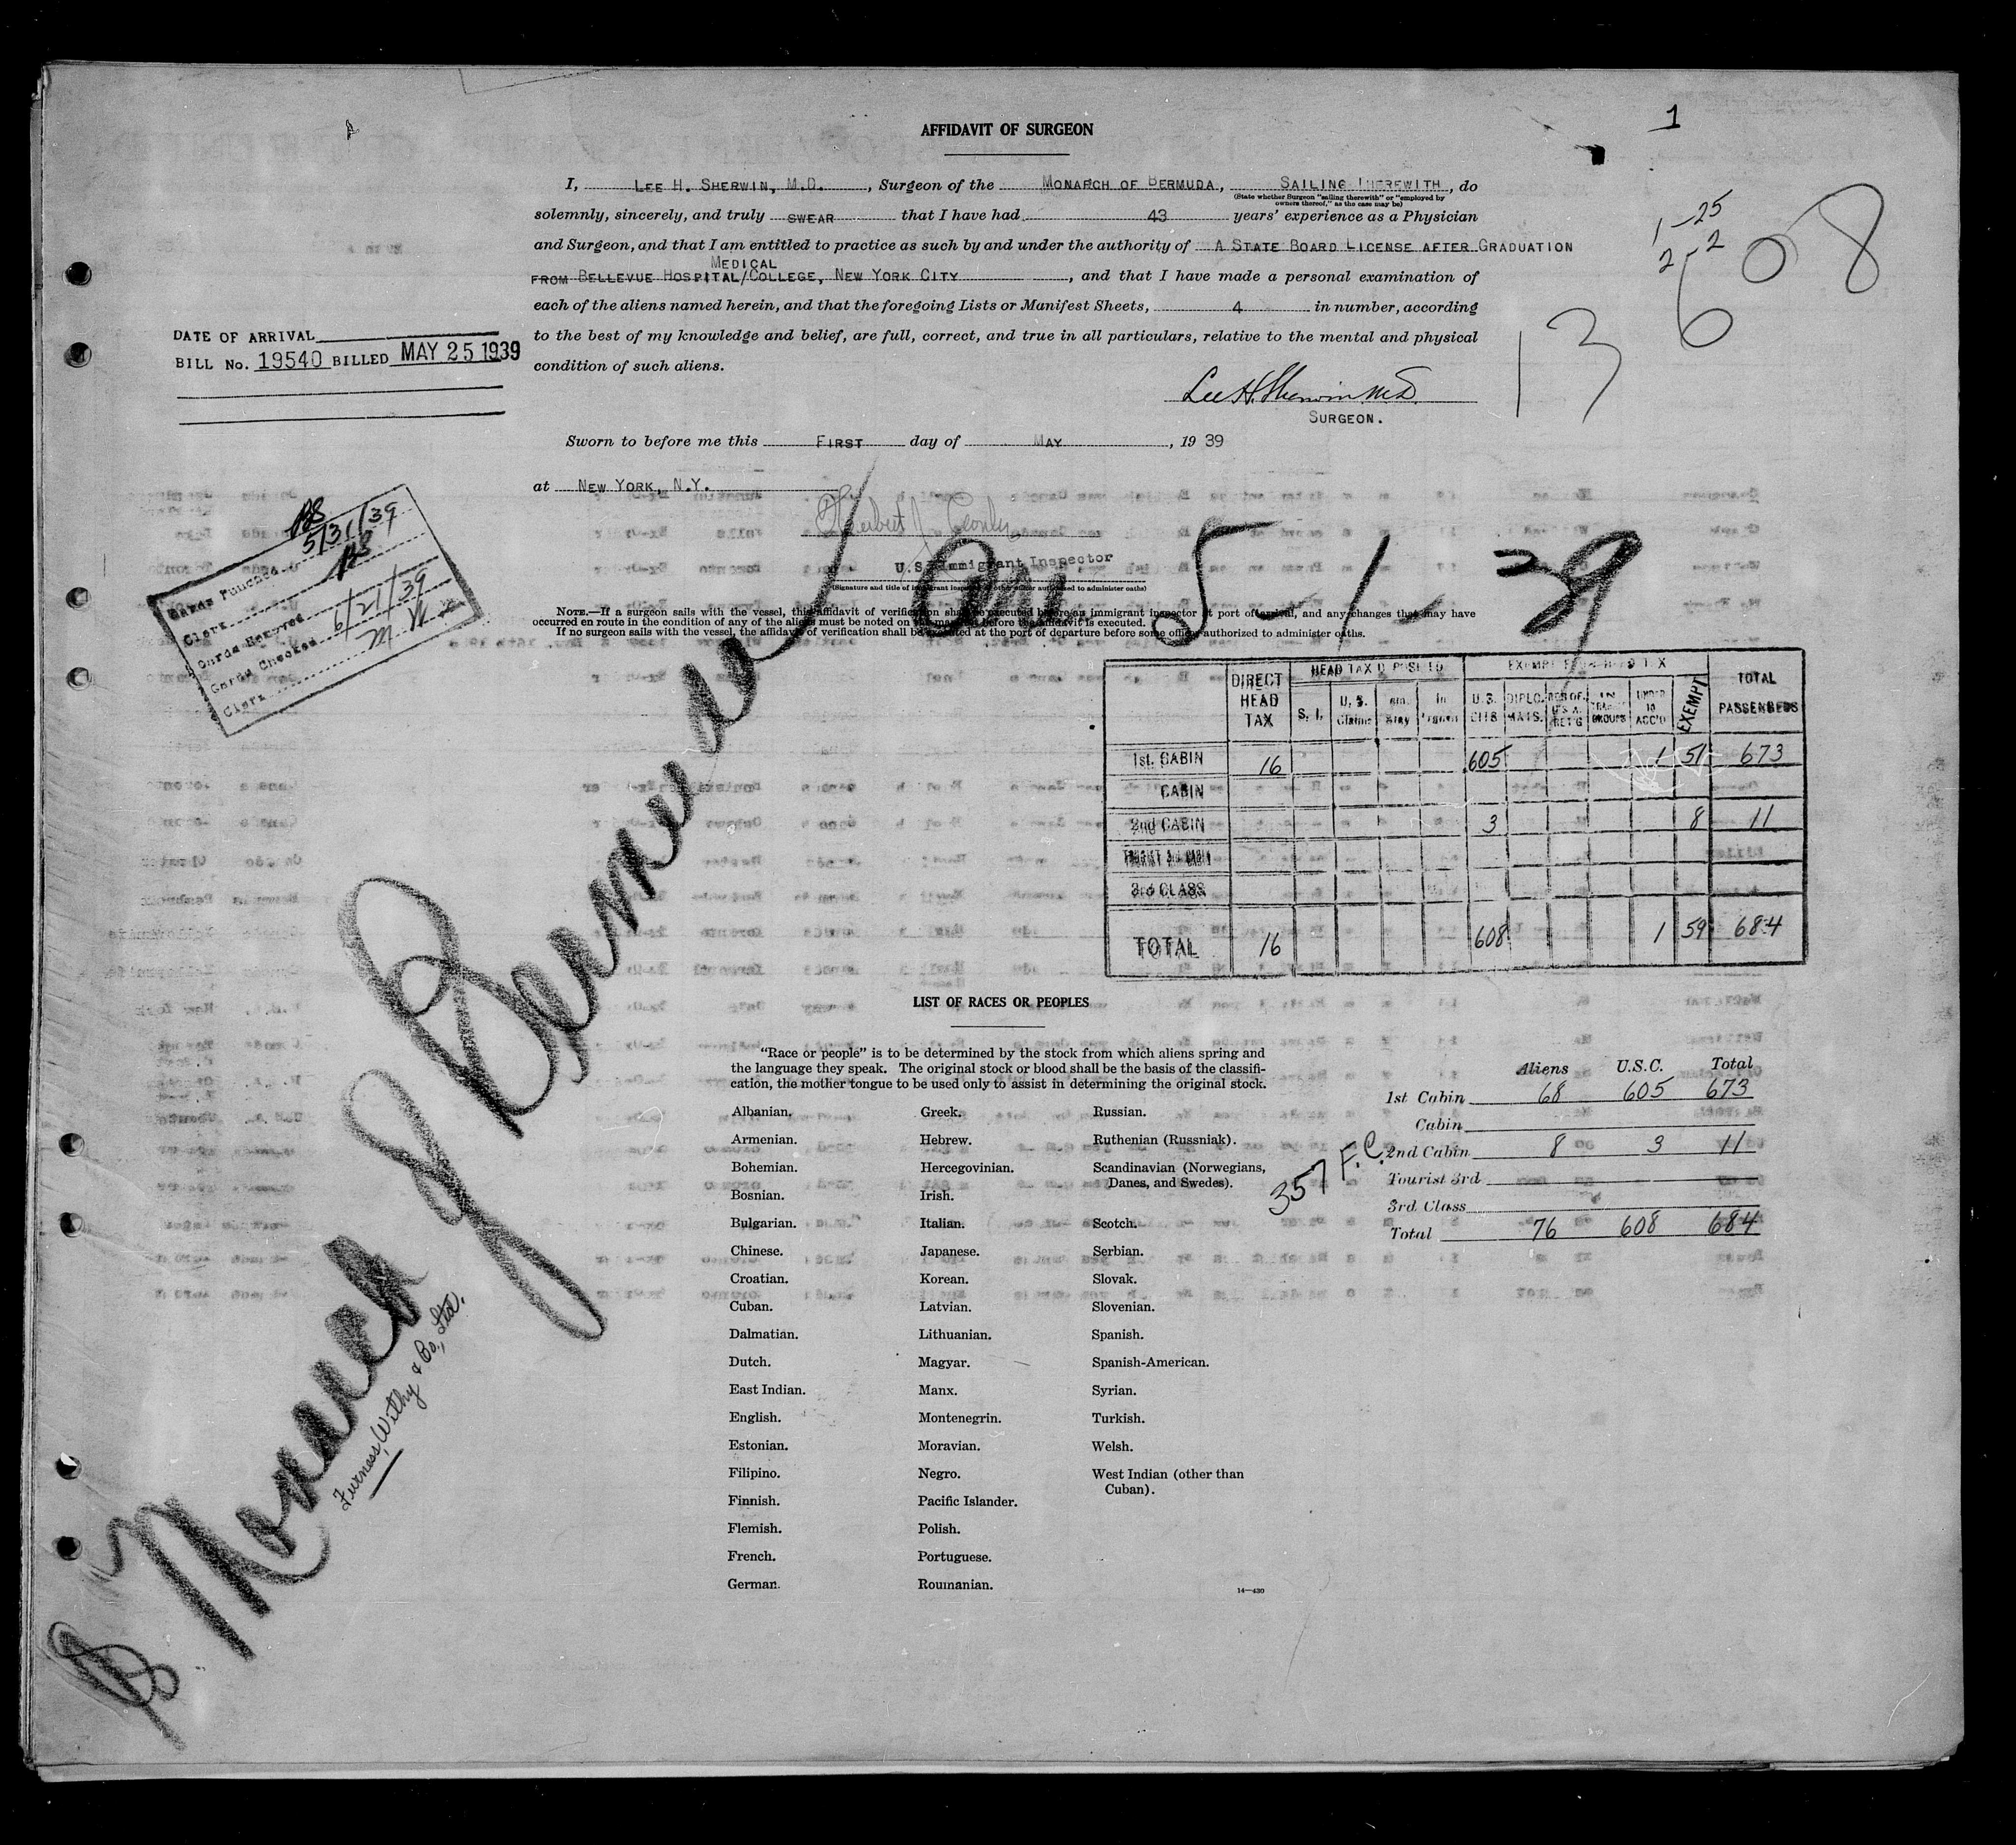 AFFIDAVIT OF SURGEON
1
I, LEE H. SHERWIN, M.D., Surgeon of the MONARCH OF BERMUDA, SAILING THEREWITH, do
(State whether Surgeon "sailing therewith" or "employed by
owners thereof," as the case may be)
solemnly, sincerely, and truly SWEAR that I have had 43 years' experience as a Physician
and Surgeon, and that I am entitled to practice as such by and under the authority of A STATE BOARD LICENSE AFTER GRADUATION
MEDICAL
FROM BELLEVUE HOSPITAL/COLLEGE, NEW YORK CITY, and that I have made a personal examination of
each of the aliens named herein, and that the foregoing Lists or Manifest Sheets, 4 in number, according
to the best of my knowledge and belief, are full, correct, and true in all particulars, relative to the mental and physical
condition of such aliens.
1-25
2-2
13608
DATE OF ARRIVAL
BILL No. 19540 BILLED MAY 25 1939
Lee H. Sherwin M.D.
SURGEON.
Sworn to before me this FIRST day of MAY, 1939
at NEW YORK, N.Y.
U.S. Immigrant Inspector
(Signature and title of immigrant inspector or other officer authorized to administer oaths)
NOTE.—If a surgeon sails with the vessel, this affidavit of verification shall be executed before an immigrant inspector at port of arrival, and any changes that may have
occurred en route in the condition of any of the aliens must be noted on the manifest before the affidavit is executed.
If no surgeon sails with the vessel, the affidavit of verification shall be executed at the port of departure before some officer authorized to administer oaths.
Cards Punched 5/31/39
Clerk
Cards Removed
Cards Checked 6/21/39
Clerk
Monarch of Bermuda
Arr 5-1-39
Furness, Withy & Co., Ltd.
DIRECT HEAD TAX
HEAD TAX DEPOSITED
EXEMPT FROM HEAD TAX
TOTAL PASSENGERS
S. I. U. S. Claims In Transit U. S. CITS DIPLOMATS. UNDER 16 ACC'D EXEMPT
1st. CABIN 16 605 1 51 673
CABIN
2nd CABIN 3 8 11
TOURIST 3rd CABIN
3rd CLASS
TOTAL 16 608 1 59 684
LIST OF RACES OR PEOPLES
"Race or people" is to be determined by the stock from which aliens spring and
the language they speak. The original stock or blood shall be the basis of the classifi-
cation, the mother tongue to be used only to assist in determining the original stock.
Albanian.
Armenian.
Bohemian.
Bosnian.
Bulgarian.
Chinese.
Croatian.
Cuban.
Dalmatian.
Dutch.
East Indian.
English.
Estonian.
Filipino.
Finnish.
Flemish.
French.
German.
Greek.
Hebrew.
Hercegovinian.
Irish.
Italian.
Japanese.
Korean.
Latvian.
Lithuanian.
Magyar.
Manx.
Montenegrin.
Moravian.
Negro.
Pacific Islander.
Polish.
Portuguese.
Roumanian.
Russian.
Ruthenian (Russniak).
Scandinavian (Norwegians,
Danes, and Swedes).
Scotch.
Serbian.
Slovak.
Slovenian.
Spanish.
Spanish-American.
Syrian.
Turkish.
Welsh.
West Indian (other than
Cuban).
14—430
Aliens U.S.C. Total
1st Cabin 68 605 673
Cabin
2nd Cabin 8 3 11
Tourist 3rd
3rd Class
Total 76 608 684
357 F.C.